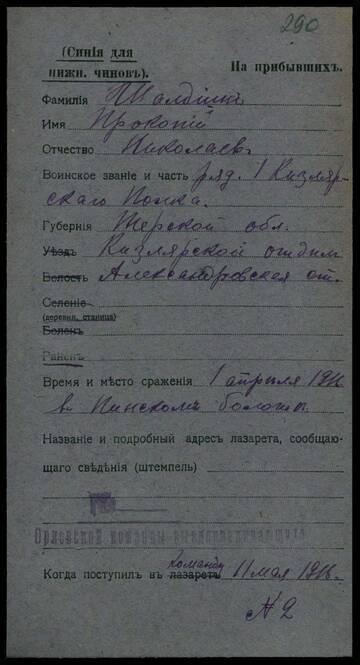 290
(Синія для
нижн. чиновъ).
На прибывшихъ.
Фамилія
Имя Прокопій
Отчество Николаев.
Воинское званіе и часть ряд. 1 Кизляр-
скаго Полка.
Губернія Терской обл.
Уѣздъ Кизлярской
Волость Александровская ст.
Селеніе
(деревня, станица)
Боленъ
Раненъ
Время и мѣсто сраженія 1 апрѣля 1916
в Пинскомъ болоты.
Названіе и подробный адресъ лазарета, сообщаю-
щаго свѣдѣнія (штемпель)
Орловской команды выздоравливающихъ
Когда поступилъ въ лазаретъ команду 11 мая 1916.
№ 2